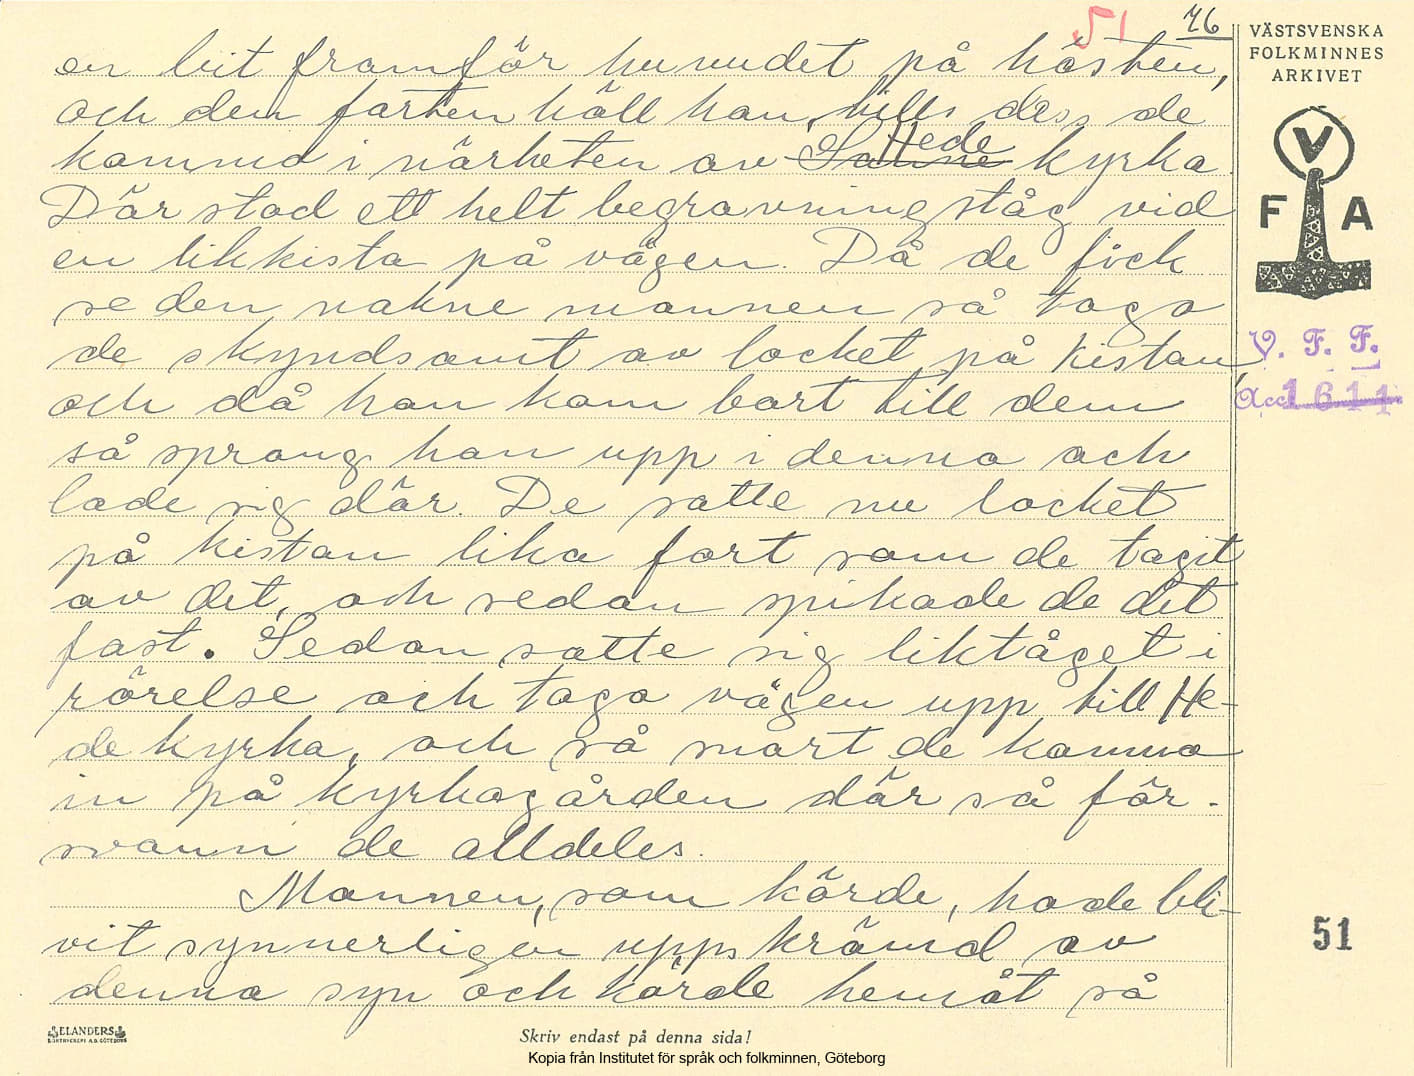 51 76
en bit framför huvudet på hästen,
och den farten höll han, tills dess de
kommo i närheten av Hede kyrka.
Där stod ett helt begravningståg vid
en likkista på vägen. Då de fick
se den nakne mannen så togo
de skyndsamt av locket på kistan,
och då han kom bort till dem
så sprang han upp i denna och
lade sig där. De satte nu locket
på kistan lika fort som de tagit
av det, och sedan spikade de det
fast. Sedan satte sig liktåget i
rörelse och togo vägen upp till He-
de kyrka, och så snart de kommo
in på kyrkogården där så för-
svann de alldeles.
Mannen, som körde, hade bli-
vit synnerligen uppskrämd av
denna syn och körde hemåt så
VÄSTSVENSKA
FOLKMINNES
ARKIVET
V
F A
V. F. F.
Acc. 1611
51
ELANDERS
BOKTRYCKERI A.B. GÖTEBORG
Skriv endast på denna sida!
Kopia från Institutet för språk och folkminnen, Göteborg